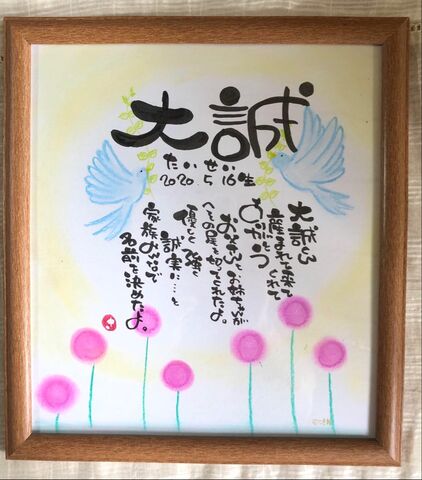 大誠
たいせい
2020.5.16生
大誠くん
産まれて来て
くれて
ありがとう
おにいちゃんとお姉ちゃんが
へその尾を切ってくれたよ。
優しく強く
誠実に…と
家族みんなで
名前を決めたよ。